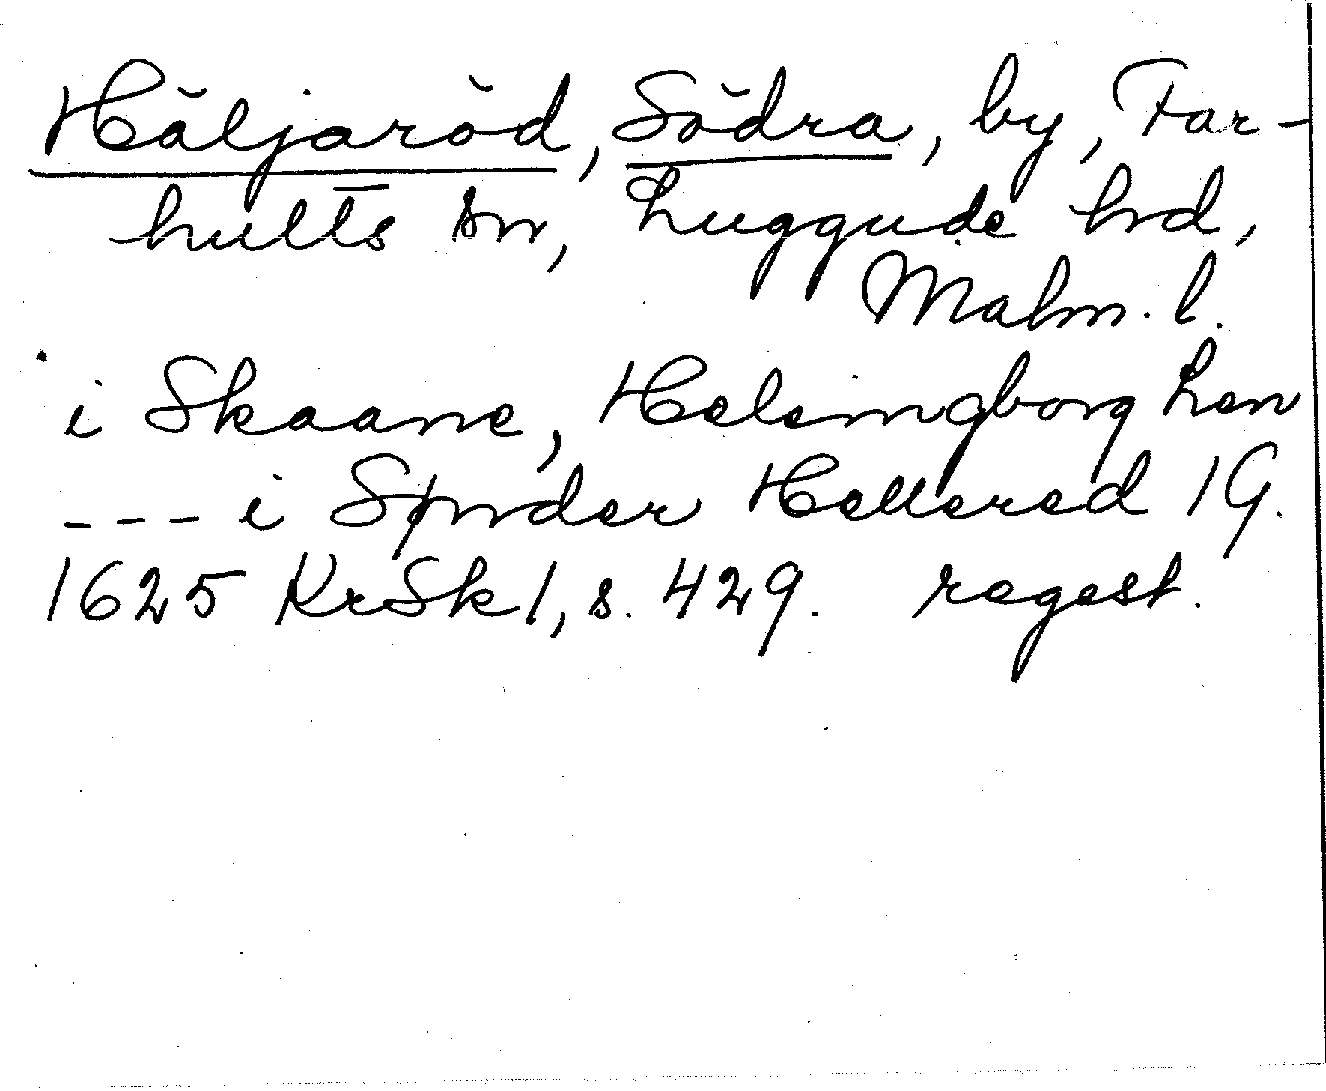 Häljaröd, Södra, by, Far-
hults sn, Luggude hrd,
Malm. l.
i Skaane, Helsingborg Len
--- i Synder Hellered 1 G.
1625 KrSk 1, s. 429. regest.